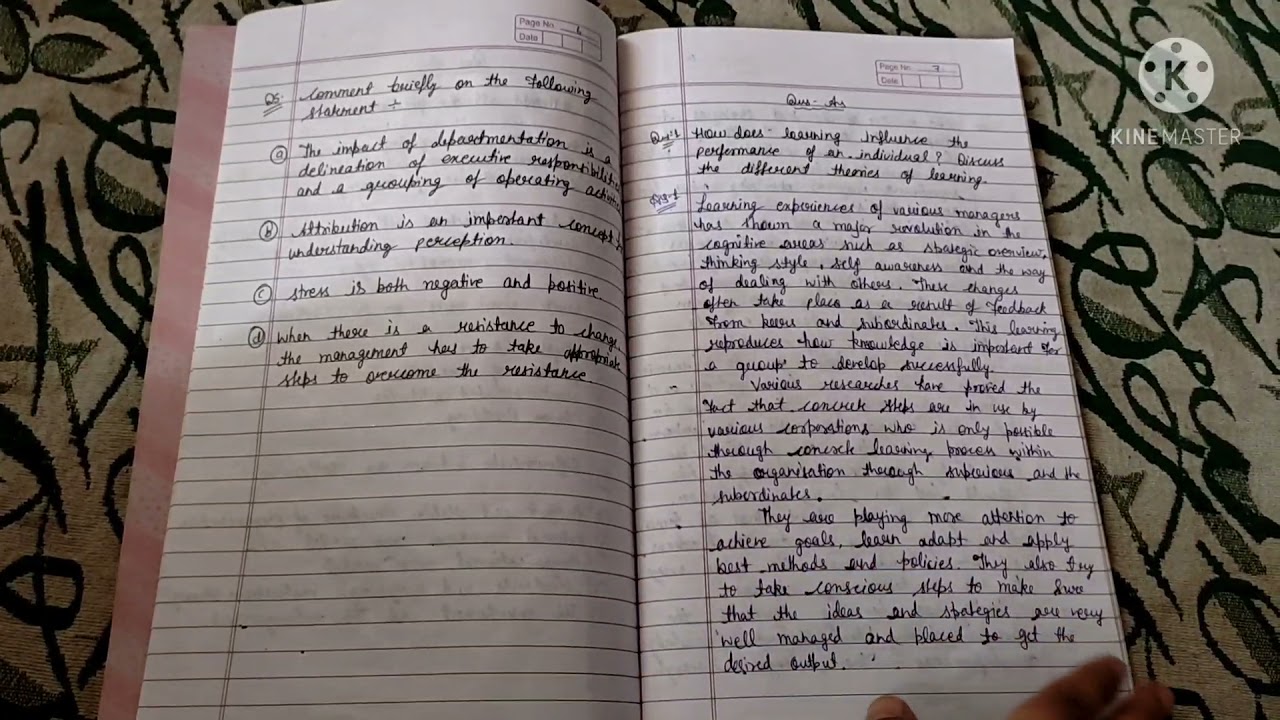 Page No. 6
Date
Q5. Comment briefly on the following
statment ÷
(a) The impact of departmentation is a
delineation of executive responsibilitie
and a grouping of operating activitie
(b) Attribution is an important concept
understanding perception.
(c) stress is both negative and positive.
(d) When there is a resistance to change
the management has to take appropriate
steps to overcome the resistance.
Page No. 7
Date
Qus:- As
Que:-1 How does learning influence the
performance of an individual? Discuss
the different theories of learning.
Learning experiences of various managers
has shown a major revolution in the
cognitive areas such as strategic overview,
thinking style, self awareness and the way
of dealing with others. These changes
often take place as a result of feedback
from peers and subordinates. This learning
reproduces how knowledge is important for
a group to develop successfully.
Various researches have proved the
fact that concrete steps are in use by
various corporations who is only possible
through concrete learning process within
the organisation through superiors and the
subordinates.
They are playing more attention to
achieve goals, learn adapt and apply
best methods and policies. They also try
to take conscious steps to make sure
that the ideas and strategies are very
well managed and placed to get the
desired output.
K
KINEMASTER